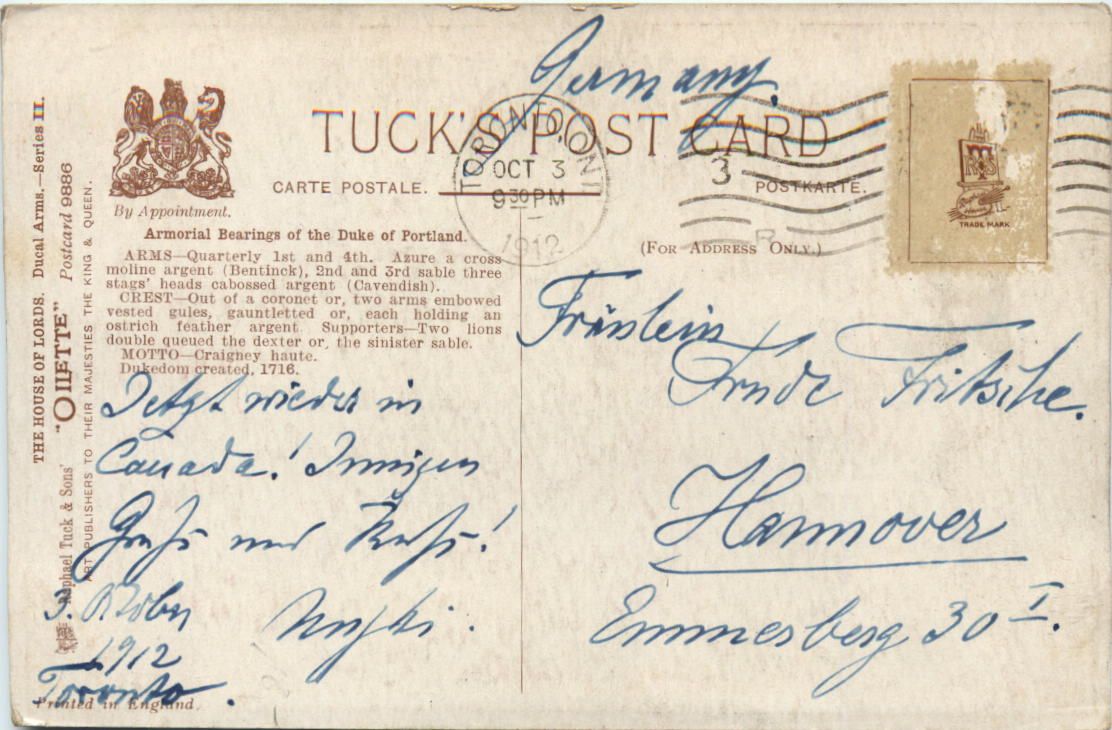 Germany.
TUCK'S POST CARD
CARTE POSTALE.
POSTKARTE.
TORONTO, ONT
OCT 3
9 30 PM
1912
3
(FOR ADDRESS ONLY.)
TRADE MARK
By Appointment.
Armorial Bearings of the Duke of Portland.
ARMS—Quarterly 1st and 4th. Azure a cross
moline argent (Bentinck), 2nd and 3rd sable three
stags' heads cabossed argent (Cavendish).
CREST—Out of a coronet or, two arms embowed
vested gules, gauntletted or, each holding an
ostrich feather argent. Supporters—Two lions
double queued the dexter or, the sinister sable.
MOTTO—Craigney haute.
Dukedom created, 1716.
THE HOUSE OF LORDS. Ducal Arms.—Series II.
Raphael Tuck & Sons' "OILETTE" Postcard 9886
ART PUBLISHERS TO THEIR MAJESTIES THE KING & QUEEN.
Jetzt wieder in
Canada! Innigen
Gruß und Kuß!
3. Oktober
1912
Toronto.
Printed in England.
Fräulein
Trude Fritsche.
Hannover
Emmerberg 30 I.